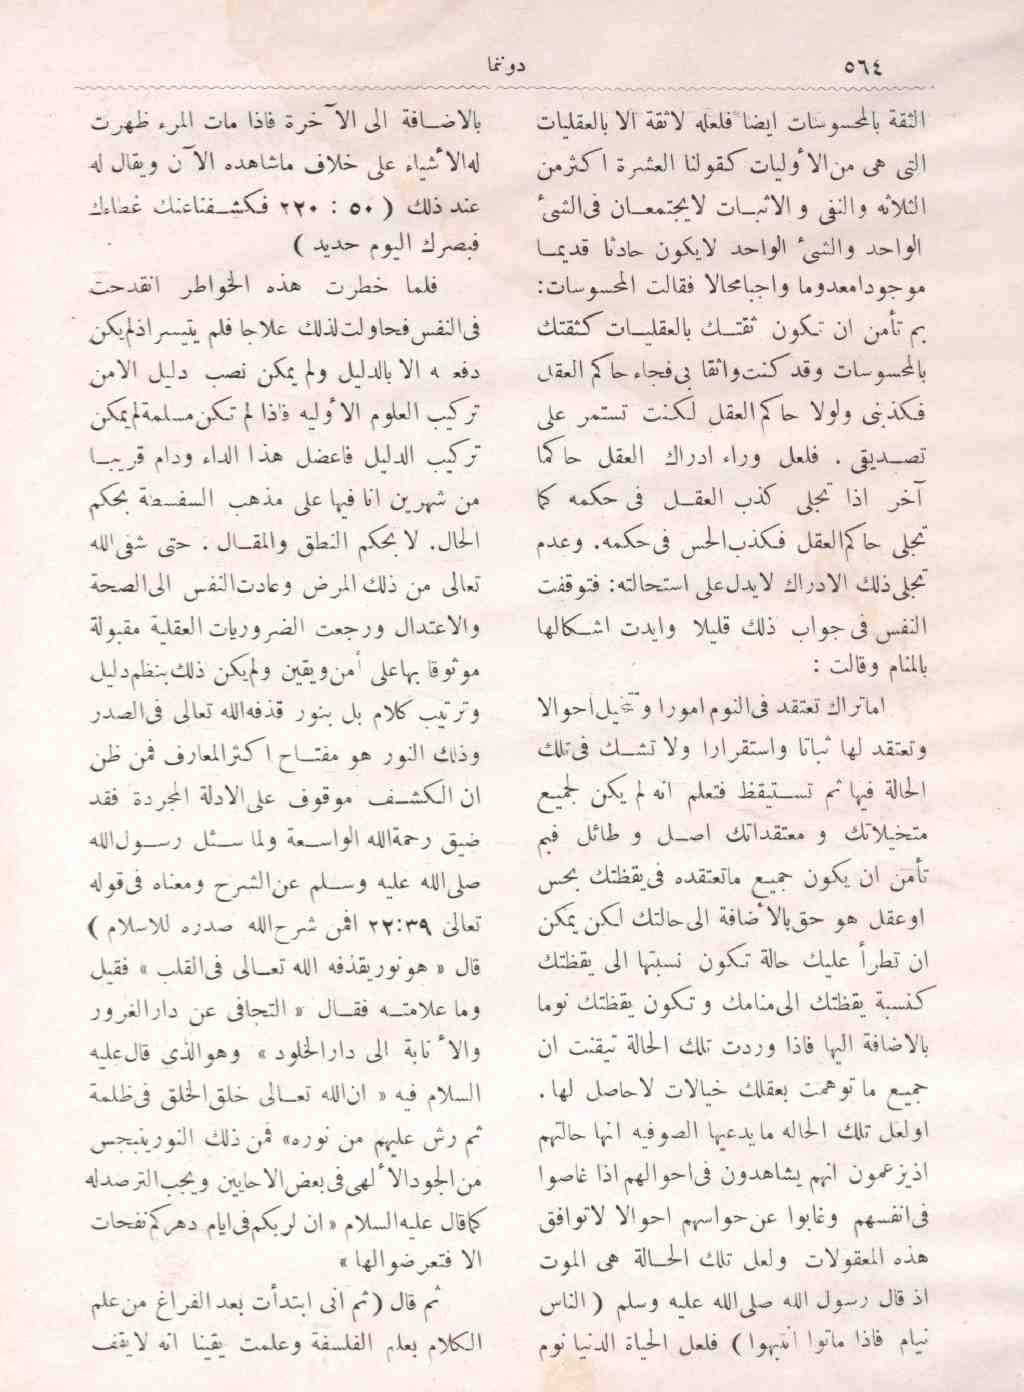 ٥٦٤
دونمٔا
الثقة بالمحسوسات ايضا فلعله لاثقة الا بالعقليات
التى هى من الأوليات كقولنا العشرة اكثرمن
الثلاثه والنفى والاثبات لايجتمعان فى الشئ
الواحد والشئ الواحد لايكون حادثا قديما
موجودا معدوما واجبا محالا فقالت المحسوسات:
بم تأمن ان تكون ثقتك بالعقليات كثقتك
بالمحسوسات وقد كنت واثقا بى فجاء حاكم العقل
فكذبنى ولولا حاكم العقل لكنت تستمر على
تصديقى . فلعل وراء ادراك العقل حاكما
آخر اذا تجلى كذب العقل فى حكمه كما
تجلى حاكم العقل فكذب الحس فى حكمه. وعدم
تجلى ذلك الادراك لايدل على استحالته: فتوقفت
النفس فى جواب ذلك قليلا وايدت اشكالها
بالمنام وقالت :
اماتراك تعتقد فى النوم امورا وتتخيل احوالا
وتعتقد لها ثباتا واستقرارا ولا تشك فى تلك
الحالة فيها ثم تستيقظ فتعلم انه لم يكن لجميع
متخيلاتك و معتقداتك اصل و طائل فبم
تأمن ان يكون جميع ماتعتقده فى يقظتك بحس
اوعقل هو حق بالأضافة الى حالتك لكن يمكن
ان تطرأ عليك حالة تكون نسبتها الى يقظتك
كنسبة يقظتك الى منامك وتكون يقظتك نوما
بالاضافة اليها فاذا وردت تلك الحالة تيقنت ان
جميع ما توهمت بعقلك خيالات لاحاصل لها .
اولعل تلك الحاله مايدعيها الصوفيه انها حالتهم
اذيزعمون انهم يشاهدون فى احوالهم اذا غاصوا
فى انفسهم وغابوا عن حواسهم احوالا لاتوافق
هذه المعقولات ولعل تلك الحالة هى الموت
اذ قال رسول الله صلى الله عليه وسلم ( الناس
نيام فاذا ماتوا انتبهوا ) فلعل الحياة الدنيا نوم
بالاضافة الى الآخرة فاذا مات المرء ظهرت
له الأشياء على خلاف ماشاهده الآن ويقال له
عند ذلك ( ٥٠ : ٢٢٠ فكشفناعنك غطاءك
فبصرك اليوم حديد )
فلما خطرت هذه الخواطر انقدحت
فى النفس فحاولت لذلك علاجا فلم يتيسر اذ لم يكن
دفعه الا بالدليل ولم يمكن نصب دليل الامن
تركيب العلوم الأوليه فاذا لم تكن مسلمة لم يمكن
تركيب الدليل فاعضل هذا الداء ودام قريبا
من شهرين انا فيها على مذهب السفسطة بحكم
الحال. لا بحكم النطق والمقال . حتى شفى الله
تعالى من ذلك المرض وعادت النفس الى الصحة
والاعتدال ورجعت الضروريات العقلية مقبولة
موثوقا بها على أمن ويقين ولم يكن ذلك بنظم دليل
وترتيب كلام بل بنور قذفه الله تعالى فى الصدر
وذلك النور هو مفتاح اكثر المعارف فمن ظن
ان الكشف موقوف على الادلة المجردة فقد
ضيق رحمة الله الواسعة ولما سئل رسول الله
صلى الله عليه وسلم عن الشرح ومعناه فى قوله
تعالى ٢٢:٣٩ افمن شرح الله صدره للاسلام )
قال « هو نور يقذفه الله تعالى فى القلب » فقيل
وما علامته فقال « التجافى عن دار الغرور
والأنابة الى دار الخلود » وهو الذى قال عليه
السلام فيه « ان الله تعالى خلق الخلق فى ظلمة
ثم رش عليهم من نوره» فمن ذلك النور ينبجس
من الجود الألهى فى بعض الاحايين ويجب الترصد له
كما قال عليه السلام « ان لربكم فى ايام دهركم نفحات
الا فتعرضوا لها »
ثم قال ( ثم انى ابتدأت بعد الفراغ من علم
الكلام بعلم الفلسفة وعلمت يقينا انه لايقف